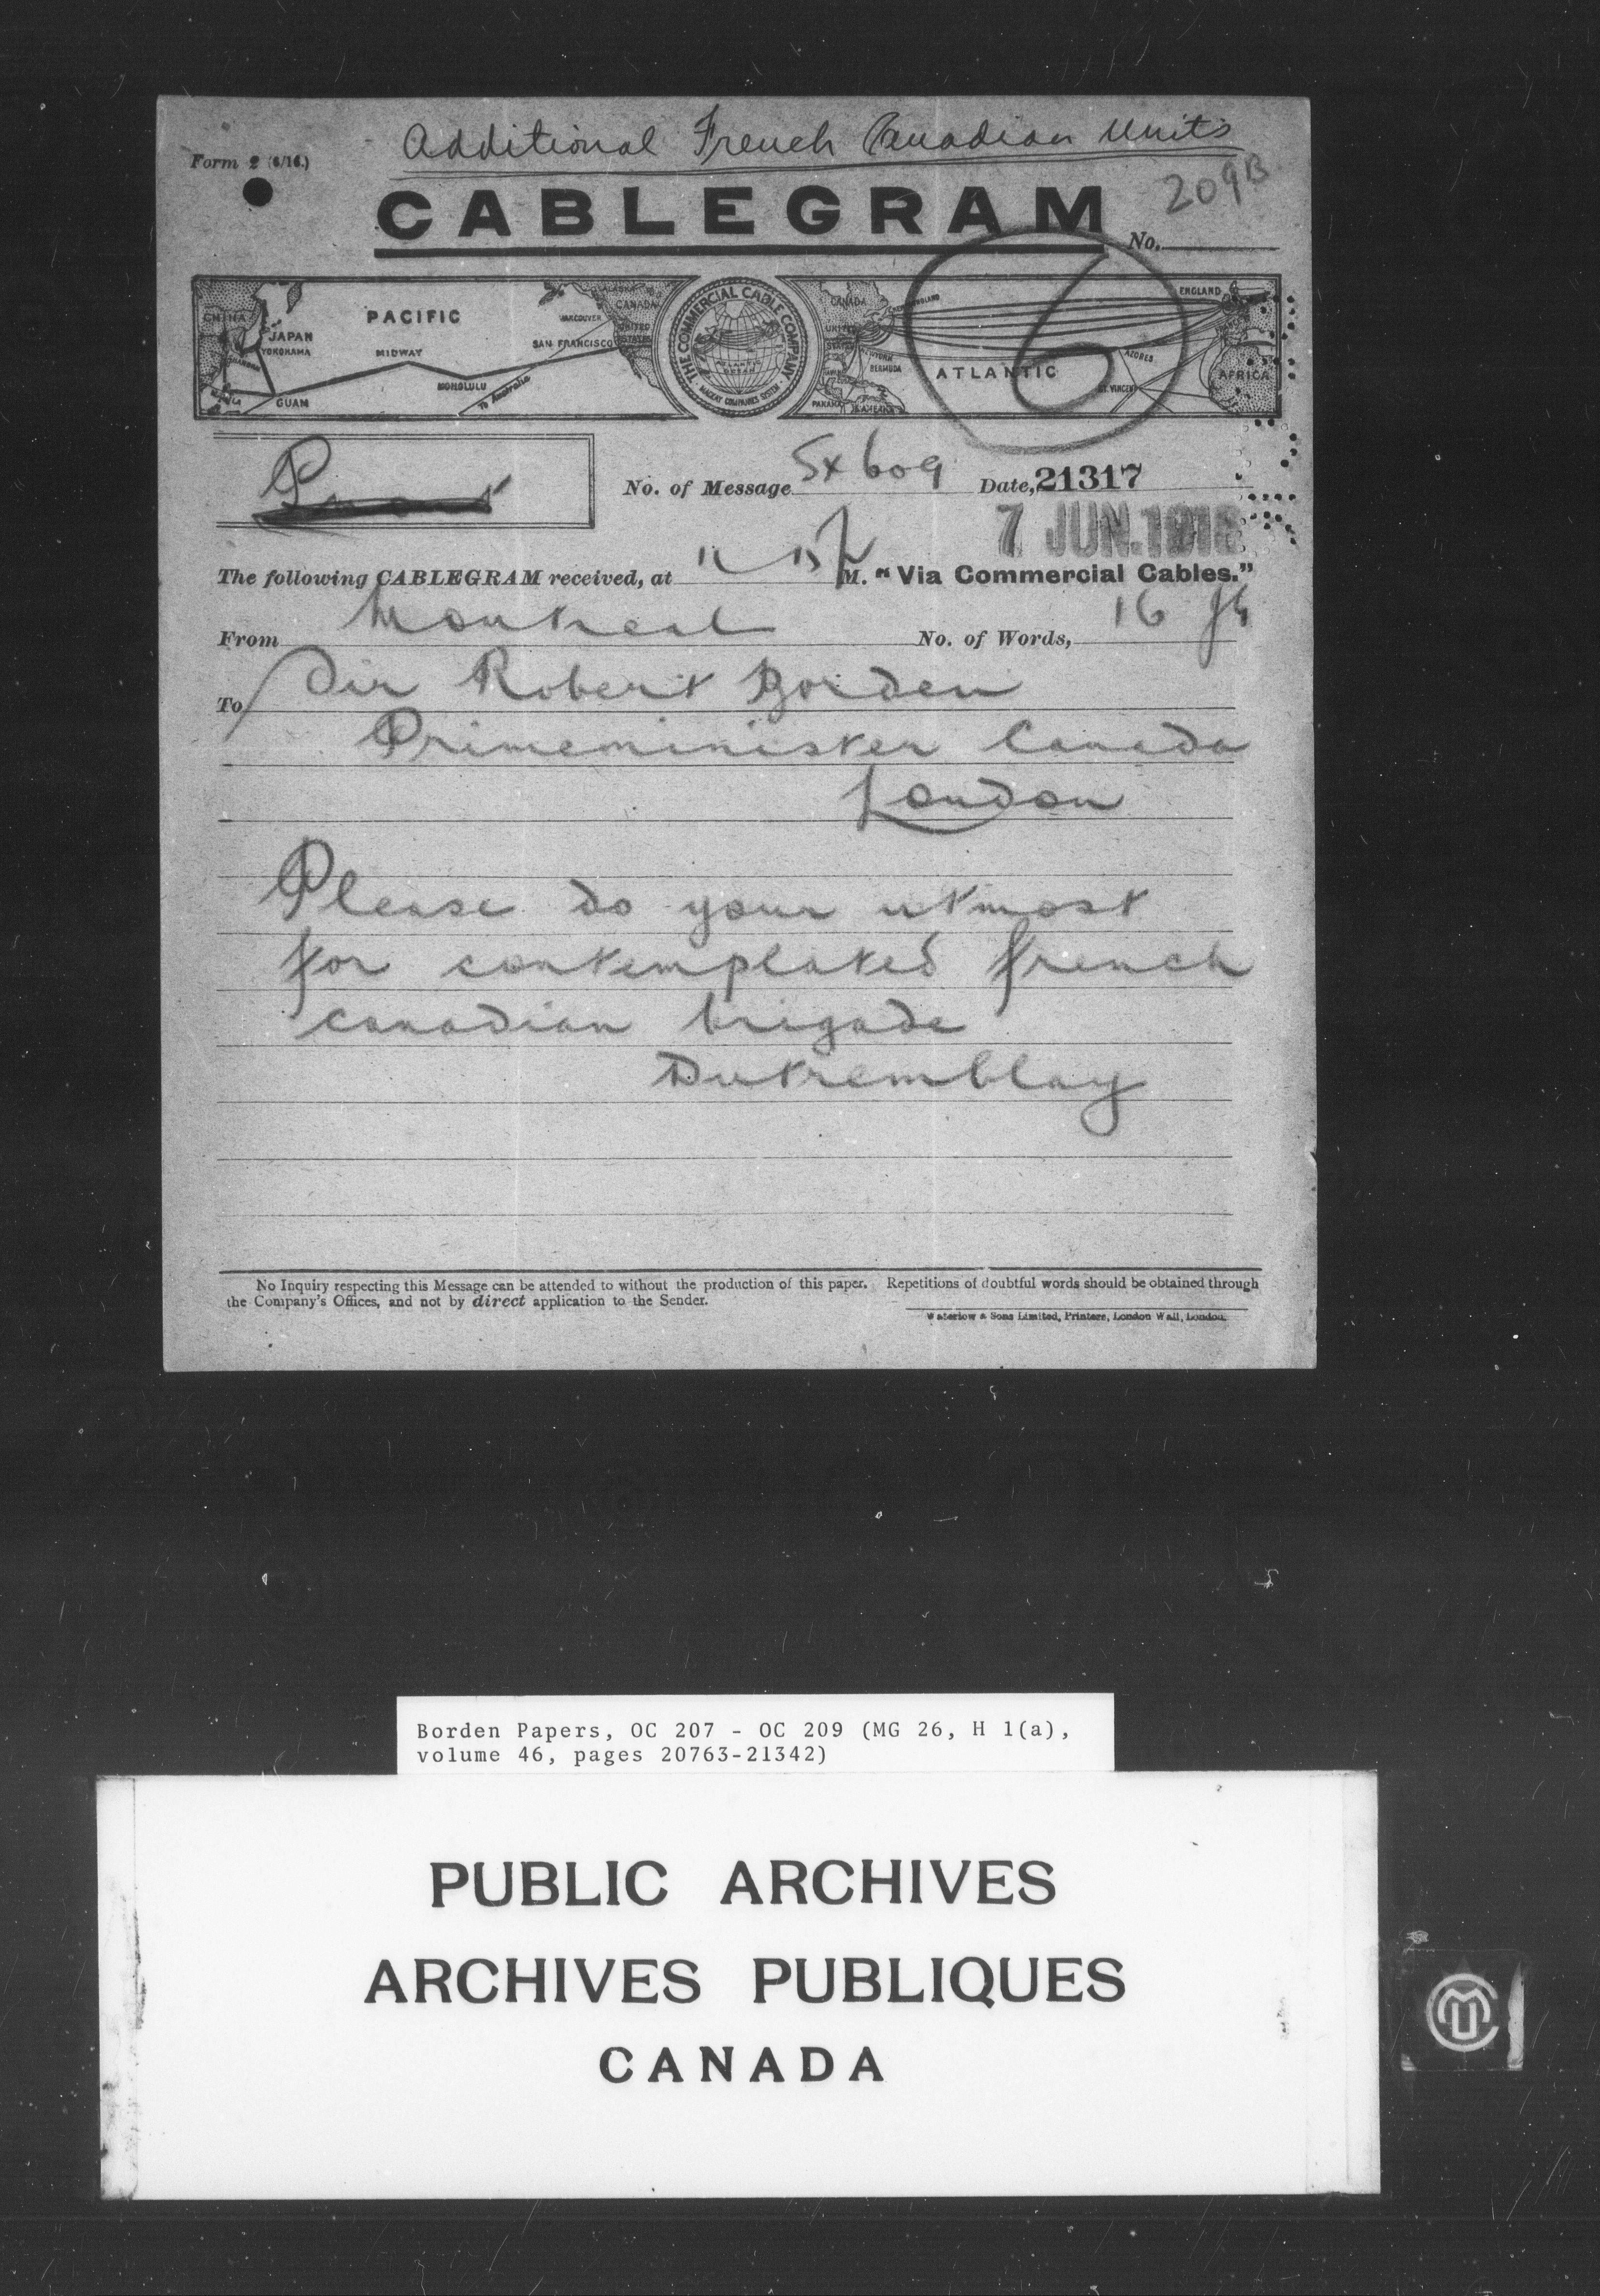 Additional French Canadian Units
Form 2 (6/16.)
209B
CABLEGRAM
No.
CHINA
JAPAN
YOKOHAMA
PACIFIC
MIDWAY
HONOLULU
GUAM
To Australia
VANCOUVER
SAN FRANCISCO
CANADA
UNITED STATES
THE COMMERCIAL CABLE COMPANY
ATLANTIC OCEAN
MACKAY COMPANIES SYSTEM
CANADA
UNITED STATES
BERMUDA
PANAMA
S. AMERICA
ATLANTIC
AZORES
ST. VINCENT
ENGLAND
AFRICA
6
No. of Message Sx 609 Date, 21317
7 JUN. 1918
The following CABLEGRAM received, at M. "Via Commercial Cables."
From Montreal No. of Words, 16
To Sir Robert Borden
Primeminister Canada
London
Please do your utmost
for contemplated french
canadian brigade
Dutremblay
No Inquiry respecting this Message can be attended to without the production of this paper. Repetitions of doubtful words should be obtained through
the Company's Offices, and not by direct application to the Sender.
Waterlow & Sons Limited, Printers, London Wall, London.
Borden Papers, OC 207 - OC 209 (MG 26, H 1(a),
volume 46, pages 20763-21342)
PUBLIC ARCHIVES
ARCHIVES PUBLIQUES
CANADA